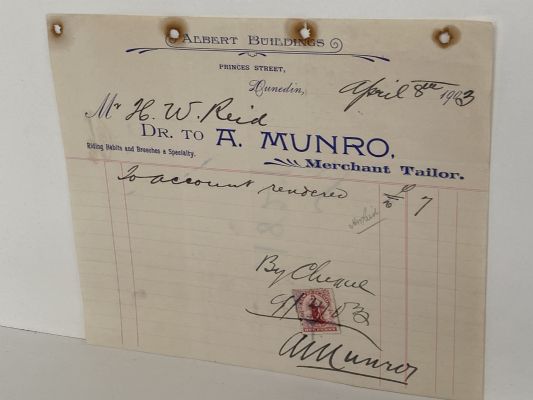 ALBERT BUILDINGS
PRINCES STREET,
Dunedin, April 8th 1903
Mr H. W. Reid
DR. TO A. MUNRO,
Riding Habits and Breeches a Specialty.
Merchant Tailor.
To account rendered £ 7
By Cheque
A Munro